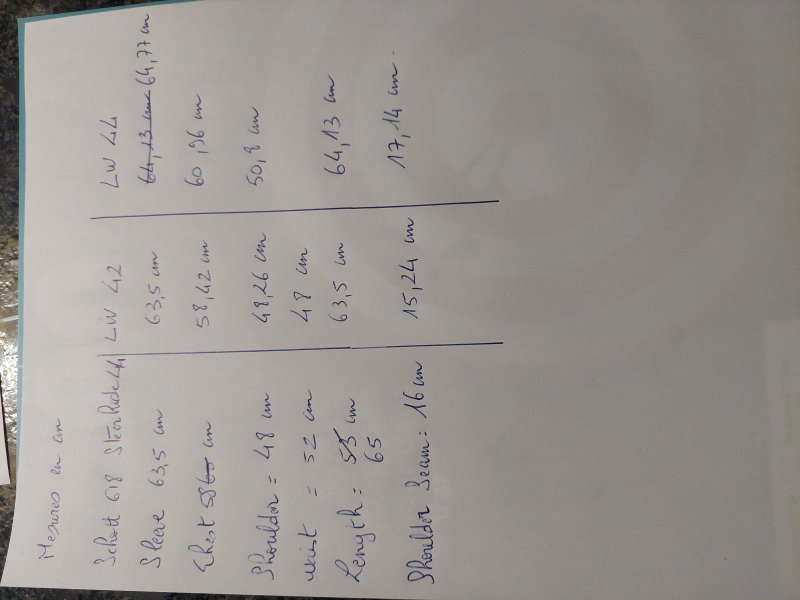 Mesures en cm
Schott 618 SteerHide 44 LW 42 LW 44
Sleeve 63,5 cm 63,5 cm 64,13 cm 64,77 cm
Chest 58 60 cm 58,42 cm 60,96 cm
Shoulder = 48 cm 48,26 cm 50,8 cm
waist = 52 cm 48 cm
Length = 55 cm 63,5 cm 64,13 cm
65
Shoulder Seam: 16 cm 15,24 cm 17,14 cm.